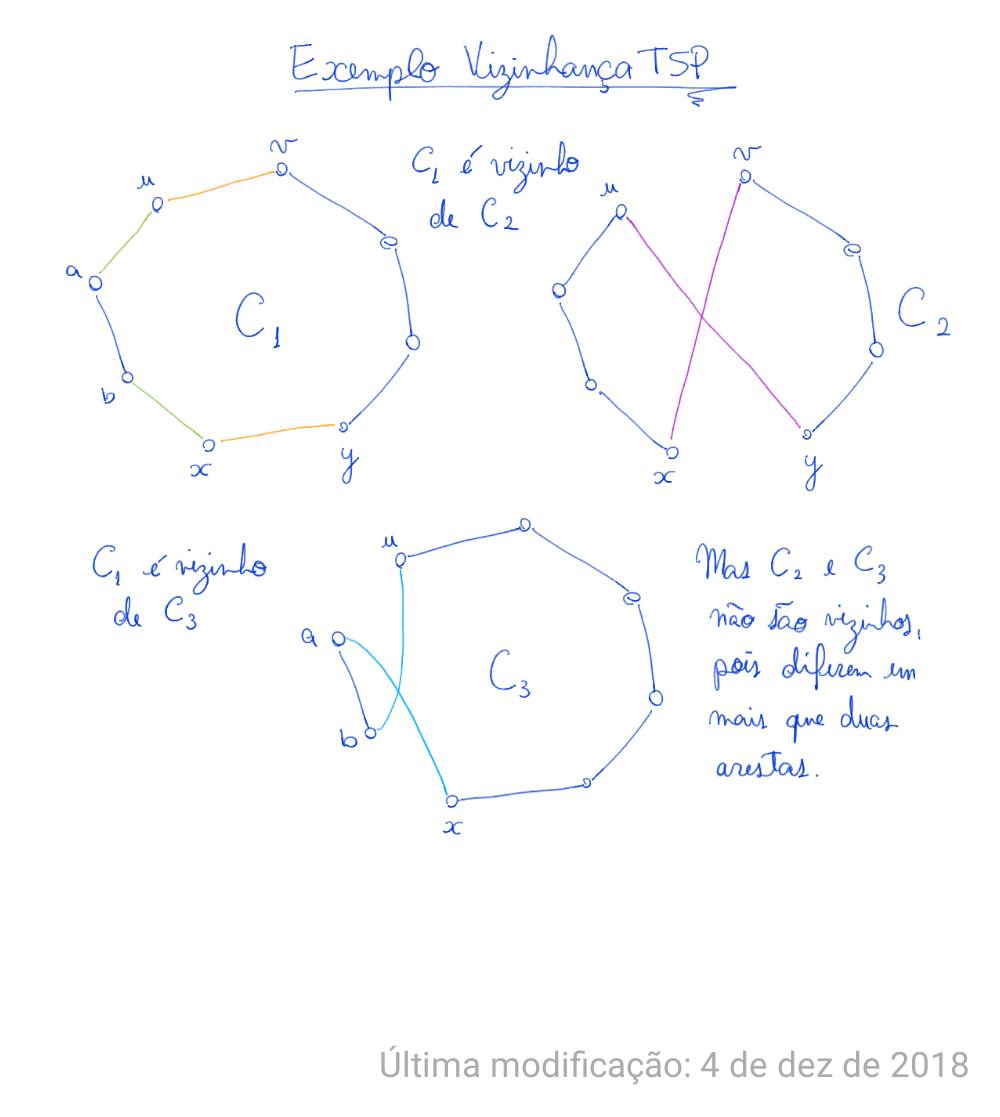 Exemplo Vizinhança TSP
C1 é vizinho
de C2
u
v
a
C1
b
x
y
u
v
C2
x
y
C1 é vizinho
de C3
u
a
C3
b
x
Mas C2 e C3
não são vizinhos,
pois diferem em
mais que duas
arestas.
Última modificação: 4 de dez de 2018